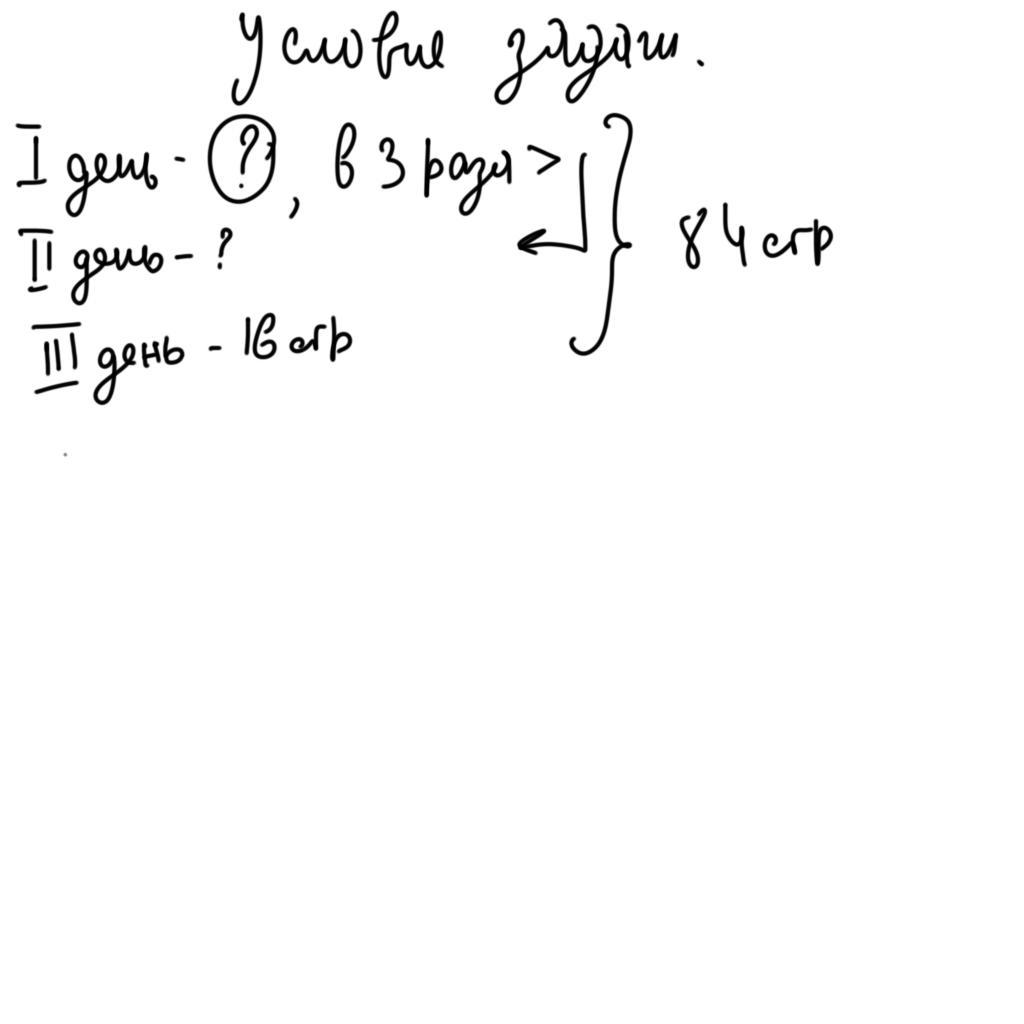 Условие задачи.
I день - ?, в 3 раза >
II день - ?
84 стр
III день - 16 стр